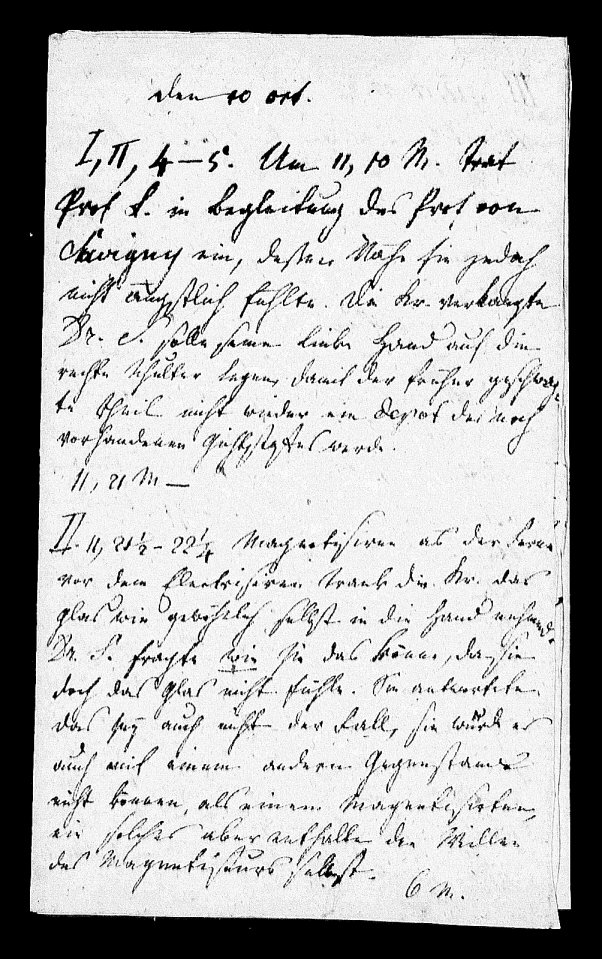 den 10 oct.
I, II, 4–5. Um 11, 10 M. trat
Prof L. in Begleitung des Prof von
Savigny ein, dessen Nähe sie jedoch
nicht ängstlich fühlte. Die Kr. verlangte
Dr. S. solle seine liebe Hand auf die
rechte Schulter legen, damit der früher geschwäch-
te Theil nicht wieder ein Depot des noch
vorhandenen Gichtstoffes werde.
11, 21 M –
II. 11, 21½ – 22¼ Magnetisiren as der Ferne
vor dem Electrisiren trank die Kr. das
Glas wie gewöhnlich selbst in die Hand nehmend.
Dr. S. fragte wie sie das könne, da sie
doch das Glas nicht fühle. Sie antwortete
das sey auch nicht der Fall, sie würde es
auch mit einem andern Gegenstande
nicht können, als einem Magnetisirten,
ein solches aber enthalte den Willen
des Magnetiseurs selbst.
6 M.